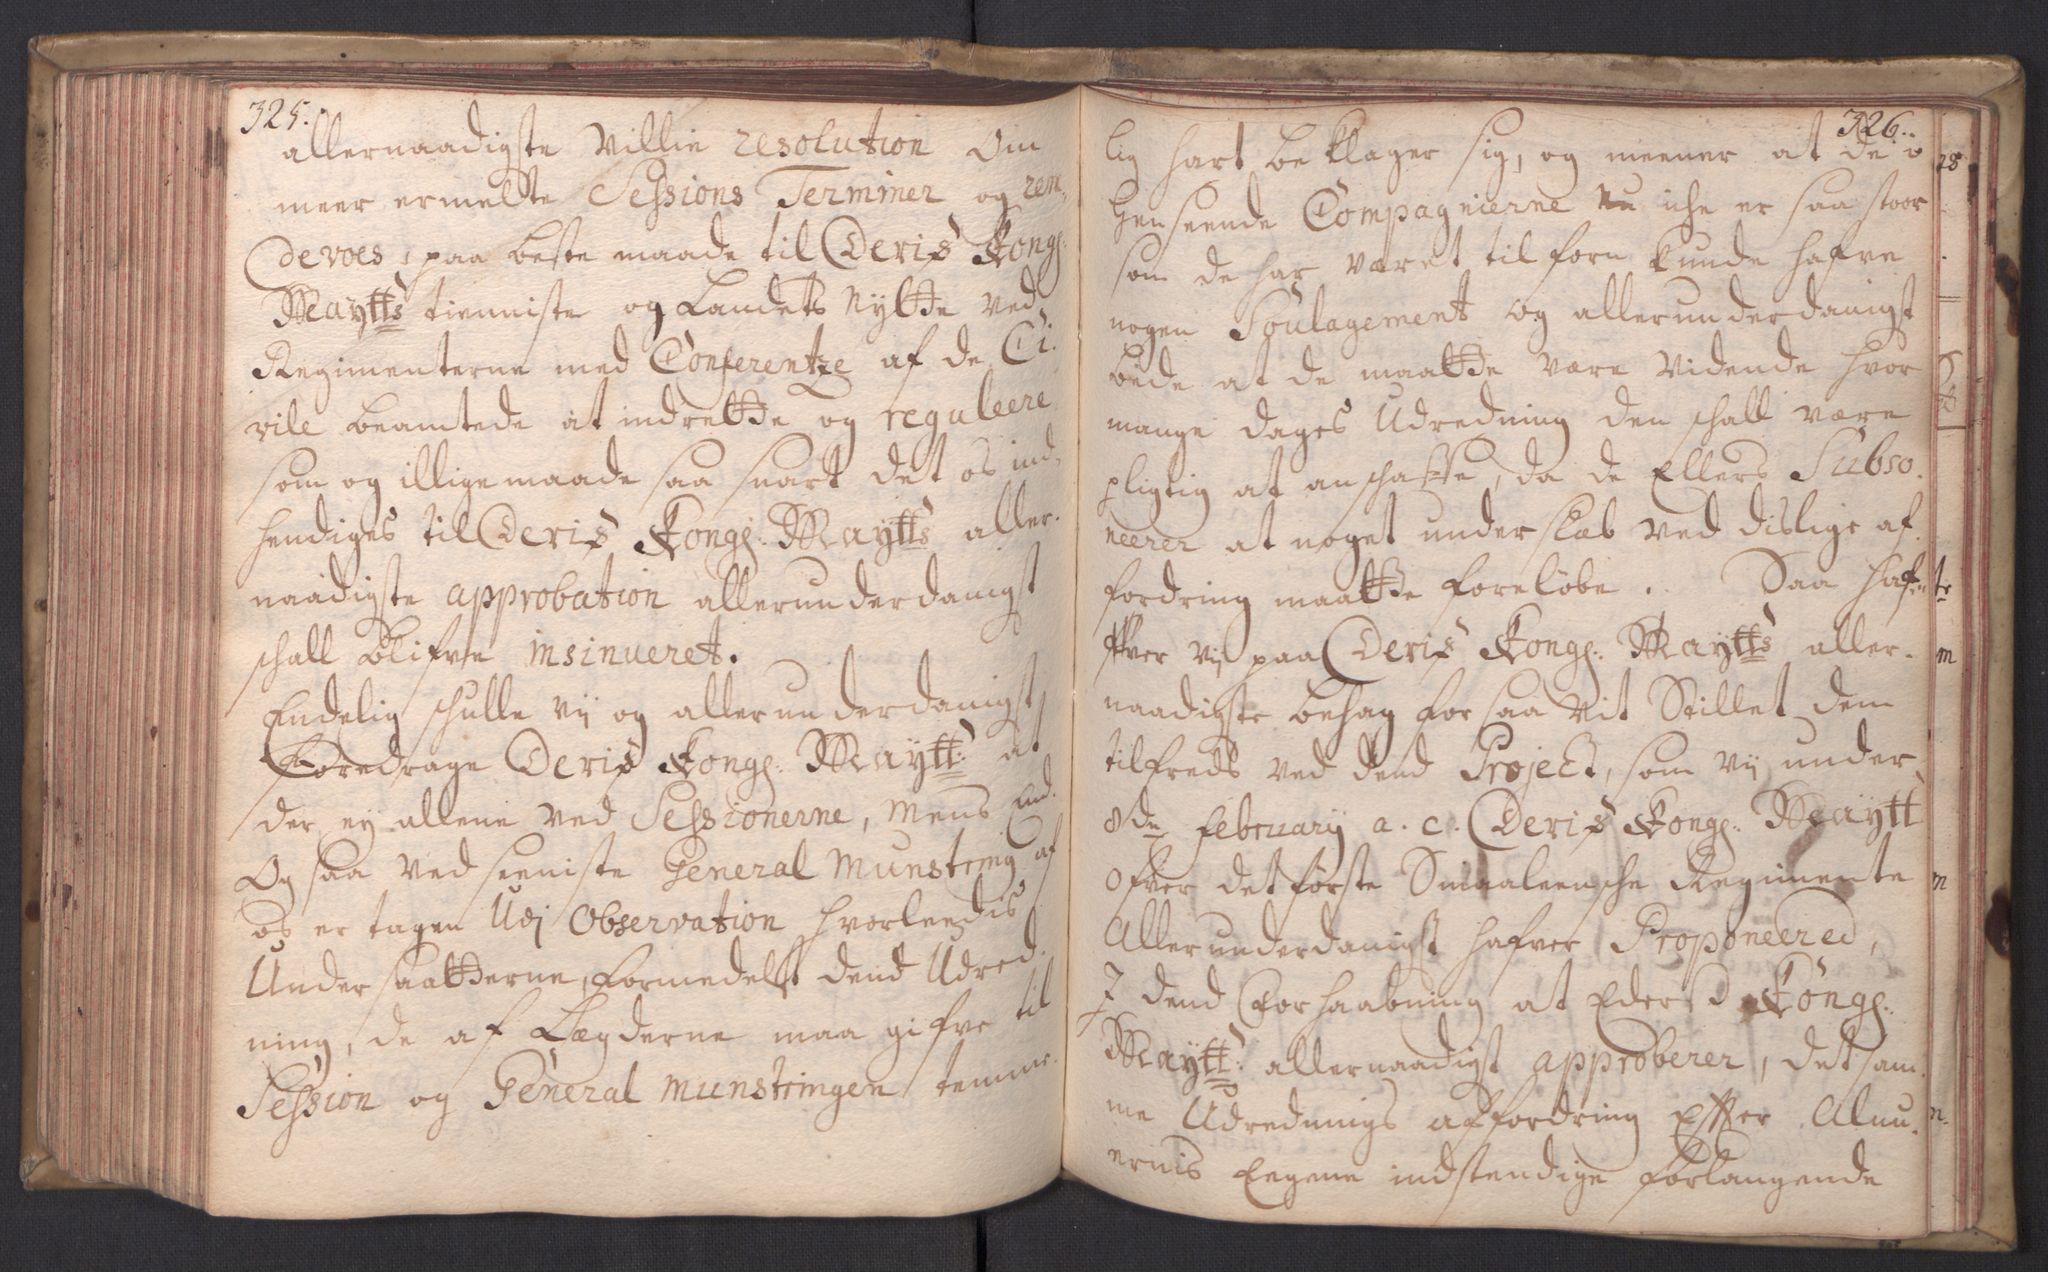 325.
allernaadigste Villie resolution Om
meer ermelte Sessions Terminer og ren-
devoes, paa beste maade til Deris Kongl:
Maytts tienniste og Landets Nytte ved
Regimenterne med Conferentze af de Ci-
vile beamtede at indrette og reguleere
som og illigemaade saa snart det os ind-
hendiges til Deris Kongl: Maytts aller-
naadigste approbation allerunderdanigst
schall blifve insinueret.
Endelig schulle vij og allerunderdanigst
Foredrage Deris Kongl: Maytt: at
der ey allene ved Sessionerne, Mens End-
Og saa ved seeniste General Munstring af
os er tagen Udj Observation hvorleedis
Undersaatterne, formedelst dend Udred-
ning, de af Lægderne maa gifve til
Session og General Munstringen temme-
326.
lig hart beklager sig, og meener at de i
henseende Compagnierne Nu iche er saa stoor
som de har været tilforn kunde hafve
nogen Soulagement og allerunderdanigst
bede at de maatte være vidende hvor
mange dages Udredning den schall være
pligtig at anschaffe, da de Ellers Subso-
neerer at noget underslæb ved dislige af-
fordring maatte foreløbe. Saa haf-
fver vij paa Deris Kongl: Maytts aller-
naadigste behag for saa vit Stillet dem
tilfreds ved dend Project, som vij under
8de February a. c. Deris Kongl: Maytt
Ofver det første Smaaleensche Regimente
Allerunderdanigst hafver Proponeered,
J dend Forhaabning at Eders Kongl:
Maytt: allernaadigst approberer, det sam-
me Udrednings affordring Effter Almu-
ernis Eegene indstendige forlangende